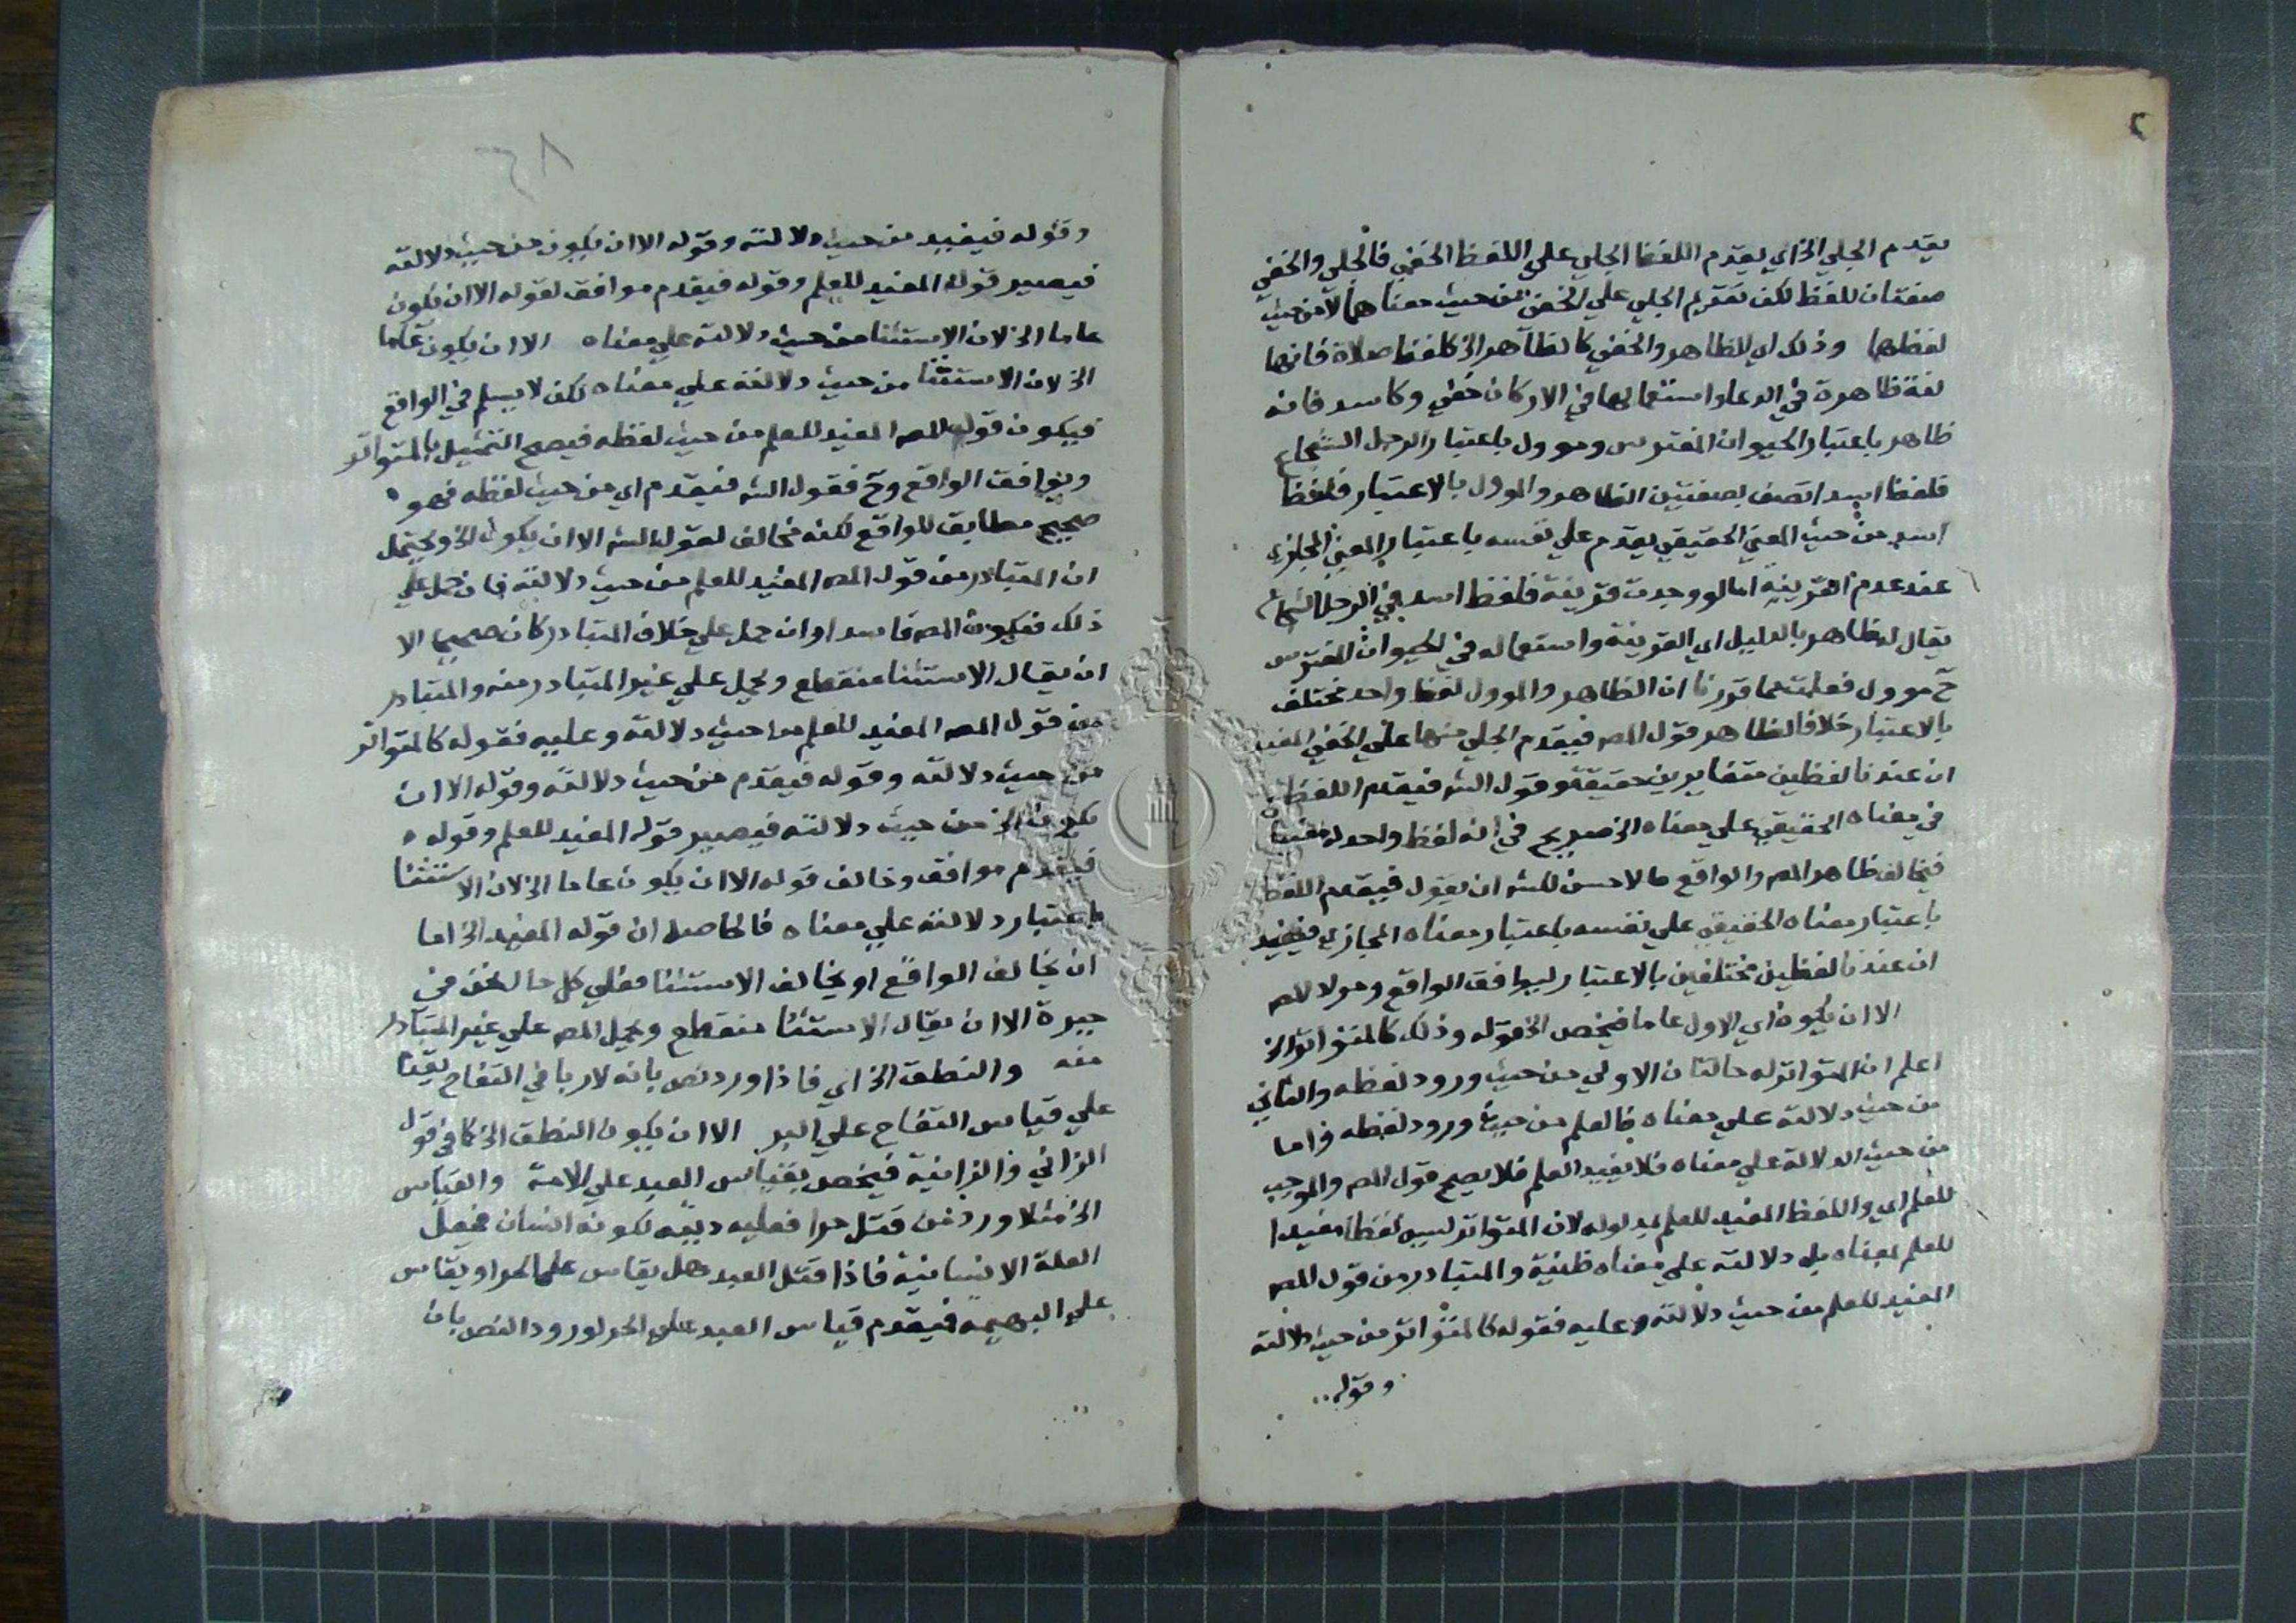 يقدم الجلي الخ اي يقدم اللفظ الجلي علي اللفظ الخفي فالجلي والخفي
صفتان للفظ لكن تقديم الجلي علي الخفي من حيث معناهما لا من حيث
لفظهما وذلك اي الظاهر والخفي كالظاهر الخ كلفظ صلاة فانها
لغة ظاهرة في الدعاء واستعمالها في الاركان خفي وكاسد فانه
ظاهر باعتبار الحيوان المفترس وموول باعتبار الرجل الشجاع
فلفظ اسد اتصف بصفتين الظاهر والموول بالاعتبار فلفظ
اسد من حيث المعني الحقيقي يقدم علي نفسه باعتبار المعني المجازي
عند عدم القرينة اما لو وجدت قرينة فلفظ اسد في الرجل الشجاع
يقال له ظاهر بالدليل اي القرينة واستعماله في الحيوان المفترس
ح موول فعلمت مما قررنا ان الظاهر والموول لفظ واحد مختلف
بالاعتبار خلافا لظاهر قول المص فيقدم الجلي منها علي الخفي المفيد
ان عندنا لفظين متغايرين حقيقة وقول الش فيقدم اللفظ
في معناه الحقيقي علي معناه الخ صريح في انه لفظ واحد له معنيان
فيخالف ظاهر المص والواقع فالاحسن للش ان يقول فيقدم اللفظ
باعتبار معناه الحقيقي علي نفسه باعتبار معناه المجازي فيفيد
ان عندنا لفظين مختلفين بالاعتبار ليوافق الواقع وحولا للمص
الا ان يكون اي الاول عاما فيخص الخ قوله وذلك كالمتواتر الخ
اعلم ان المتواتر له حالتان الاولي من حيث ورود لفظه والثاني
من حيث دلالته علي معناه فالعلم من حيث ورود لفظه واما
من حيث الدلالة علي معناه فلا يفيد العلم فلا يصح قول المص والموجب
للعلم اي واللفظ المفيد للعلم بمدلوله لان المتواتر ليس لفظا مفيدا
للعلم بمعناه بل دلالته علي معناه ظنية والمتبادر من قول المص
المفيد للعلم من حيث دلالته وعليه فقوله كالمتواتر من حيث دلالته
وقوله
٢٨
وقوله فيفيد من حيث دلالته وقوله الا ان يكون من حيث دلالته
فيصير قوله المفيد للعلم وقوله فيقدم موافق لقوله الا ان يكون
عاما الخ لان الاستثنا من حيث دلالته علي معناه الا ان يكون عاما
الخ لان الاستثنا من حيث دلالته علي معناه لكن لا يسلم في الواقع
فيكون قول المص المفيد للعلم من حيث لفظه فيصح التمثيل بالمتواتر
ويوافق الواقع وح فقول الش فيقدم اي من حيث لفظه فهو
صحيح مطابق للواقع لكنه مخالف لقول الش الا ان يكون الخ ويحتمل
ان المتبادر من قول المص المفيد للعلم من حيث دلالته فان حمل علي
ذلك فيكون المص فاسدا وان حمل علي خلاف المتبادر كان صحيحا الا
ان يقال الاستثنا منقطع ويحمل علي غير المتبادر منه والمتبادر
من قول المص المفيد للعلم من حيث دلالته وعليه فقوله كالمتواتر
من حيث دلالته وقوله فيقدم من حيث دلالته وقوله الا ان
يكون الخ من حيث دلالته فيصير قوله المفيد للعلم وقوله
فيقدم موافق وخالف قوله الا ان يكون عاما الخ لان الاستثنا
باعتبار دلالته علي معناه فالحاصل ان قوله المفيد الخ اما
ان يخالف الواقع او يخالف الاستثنا فعلي كل حال نحن في
حيرة الا ان يقال الاستثنا منقطع ويحمل المص علي غير المتبادر
منه والنطق الخ اي فاذا ورد نص بانه لا ربا في التفاح يقدم
علي قياس التفاح علي البر الا ان يكون النطق الخ كما في قوله
الزاني والزانية فيخص بقياس العبد علي الامة والقياس
الخ مثلا ورد من قتل حرا فعليه ديته لكونه انسان فجعل
العلة الانسانية فاذا قتل العبد هل يقاس علي الحر او يقاس
علي البهيمة فيقدم قياس العبد علي الحر لورود النص بان